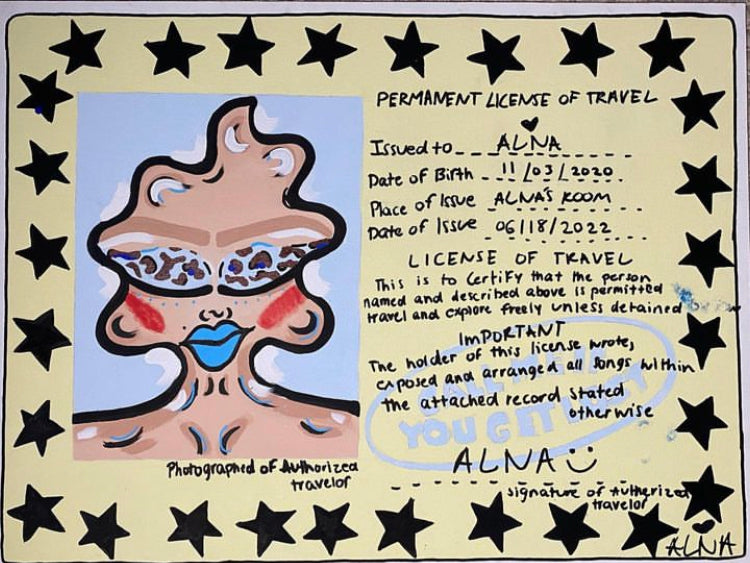 PERMANENT LICENSE OF TRAVEL
Issued to ALNA
Date of Birth 11/03/2020
Place of Issue ALNA'S ROOM
Date of Issue 06/18/2022
LICENSE OF TRAVEL
This is to certify that the person
named and described above is permitted
travel and explore freely unless detained
IMPORTANT
The holder of this license wrote,
exposed and arranged all songs within
the attached record stated
otherwise
YOU GET
ALNA
Photographed of Authorized
travelor
signature of Autherized
travelor
ALNA